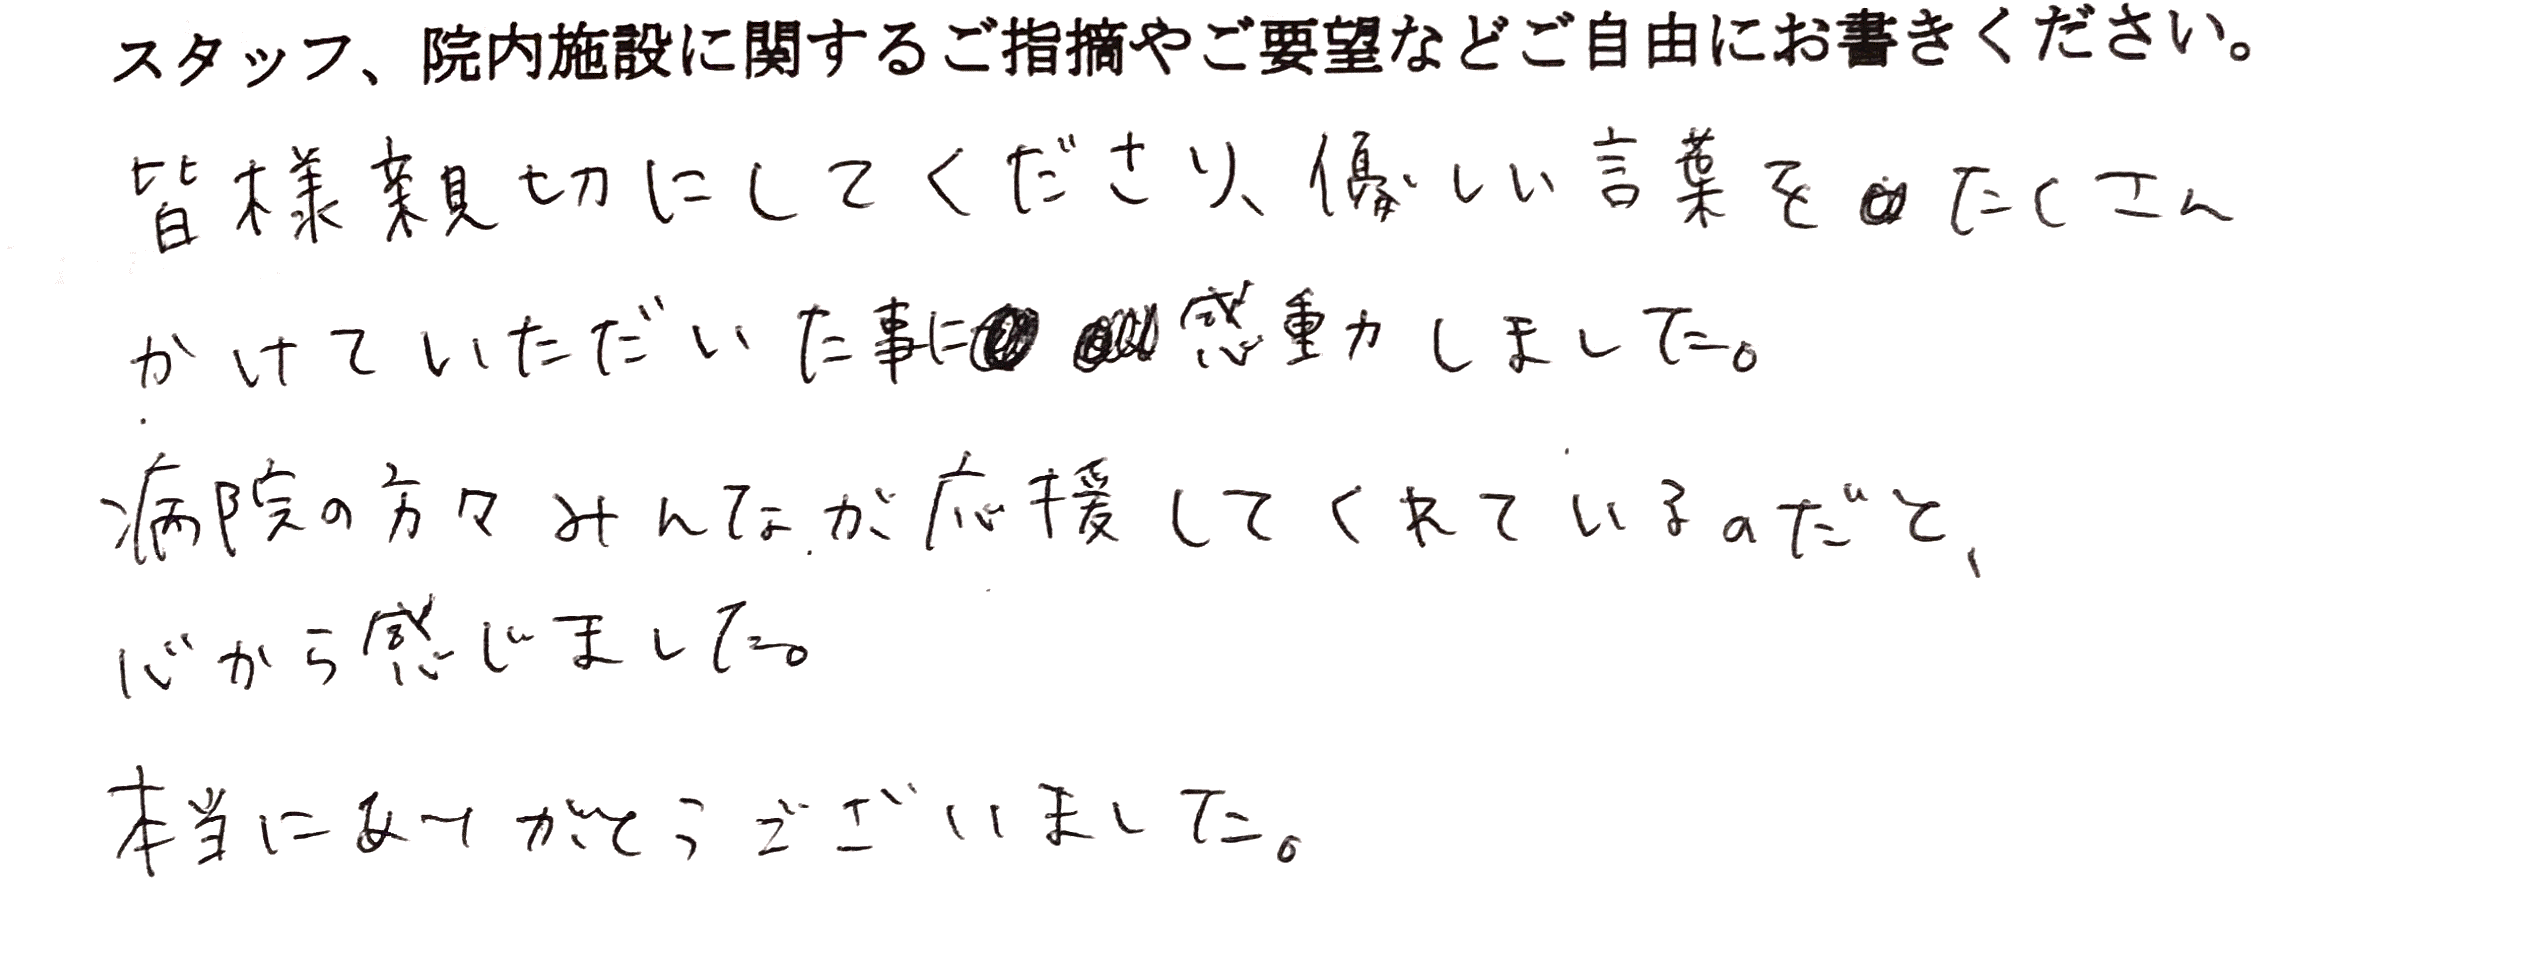 スタッフ、院内施設に関するご指摘やご要望などご自由にお書きください。
皆様親切にしてくださり、優しい言葉をたくさん
かけていただいた事に感動しました。
病院の方々みんなが応援してくれているのだと、
心から感じました。
本当にありがとうございました。